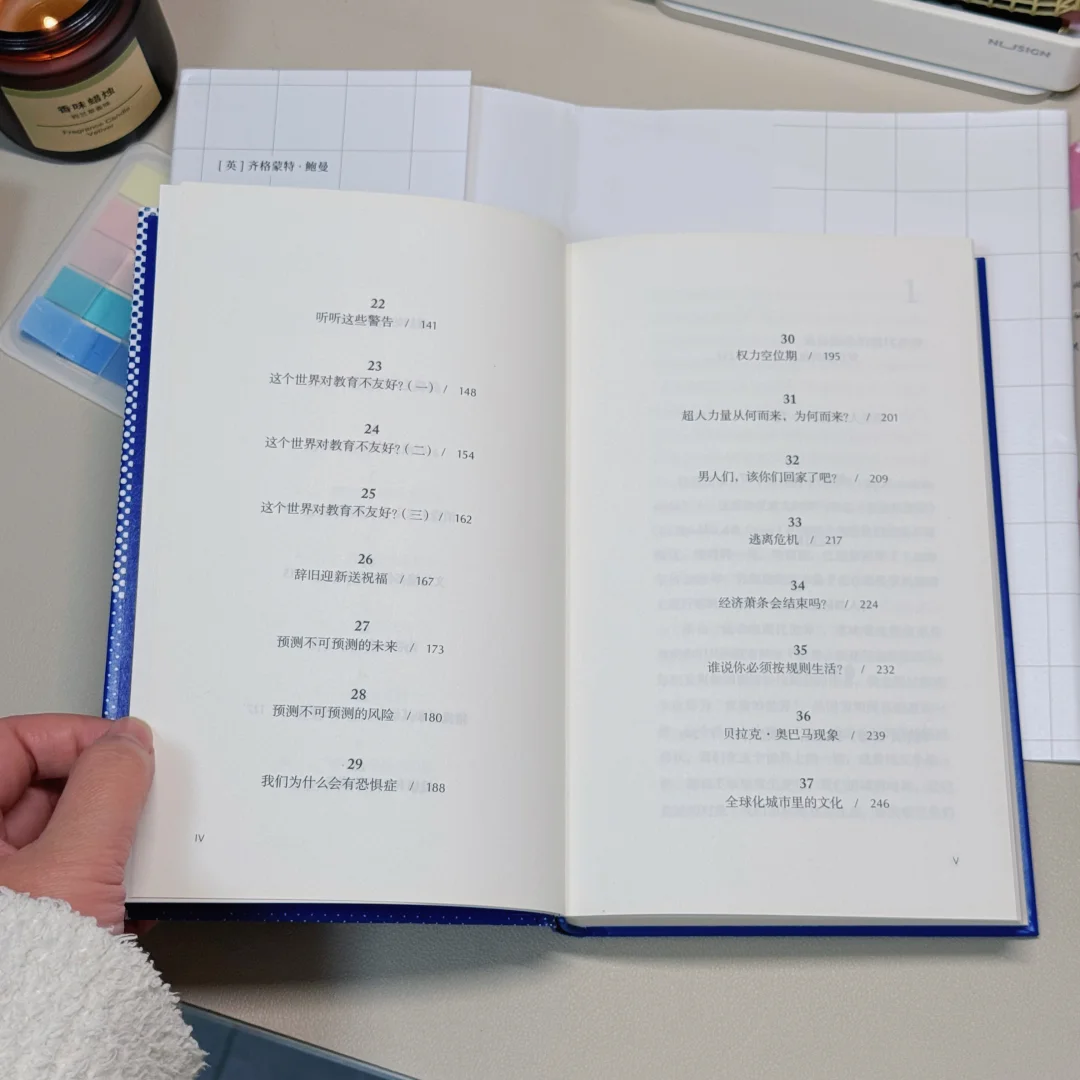 香味蜡烛
Fragrance Candle
Vetiver
[英]齐格蒙特·鲍曼
22
听听这些警告 / 141
23
这个世界对教育不友好?(一) / 148
24
这个世界对教育不友好?(二) / 154
25
这个世界对教育不友好?(三) / 162
26
辞旧迎新送祝福 / 167
27
预测不可预测的未来 / 173
28
预测不可预测的风险 / 180
29
我们为什么会有恐惧症 / 188
IV
30
权力空位期 / 195
31
超人力量从何而来，为何而来? / 201
32
男人们，该你们回家了吧? / 209
33
逃离危机 / 217
34
经济萧条会结束吗? / 224
35
谁说你必须按规则生活? / 232
36
贝拉克·奥巴马现象 / 239
37
全球化城市里的文化 / 246
V